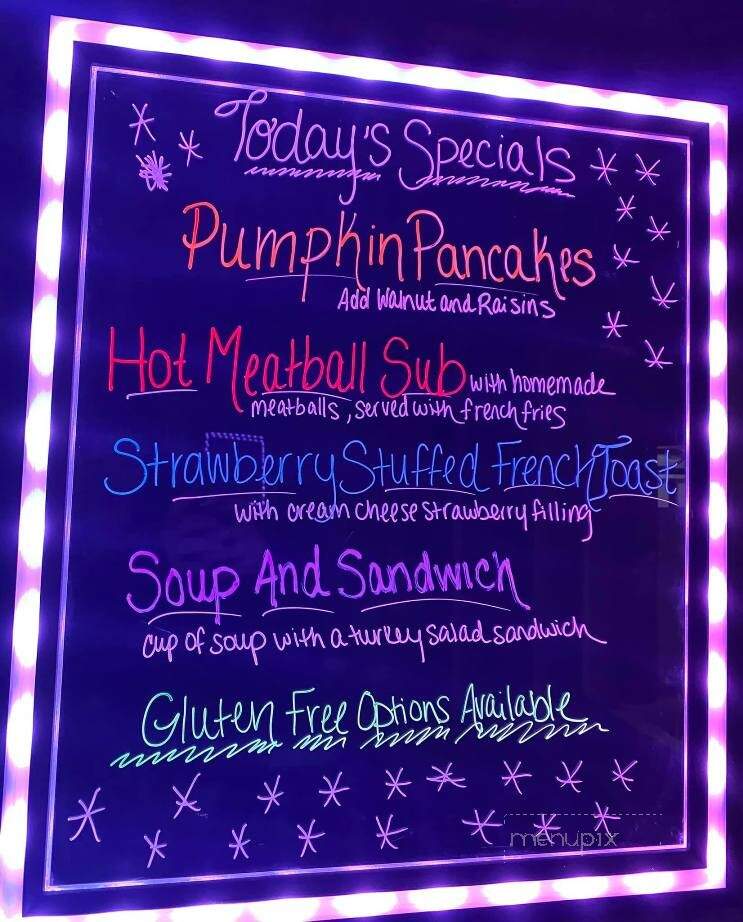 Today's Specials
Pumpkin Pancakes
Add Walnut and Raisins
Hot Meatball Sub with homemade
meatballs, served with french fries
Strawberry Stuffed French Toast
with cream cheese strawberry filling
Soup And Sandwich
cup of soup with a turkey salad sandwich
Gluten Free Options Available
menupix